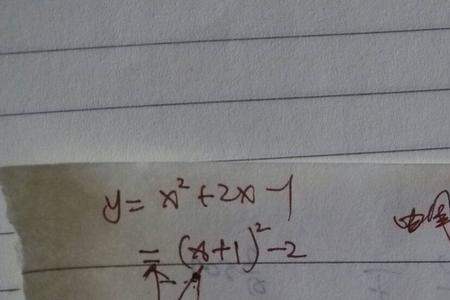 y = x² + 2x - 1
= (x + 1)² - 2